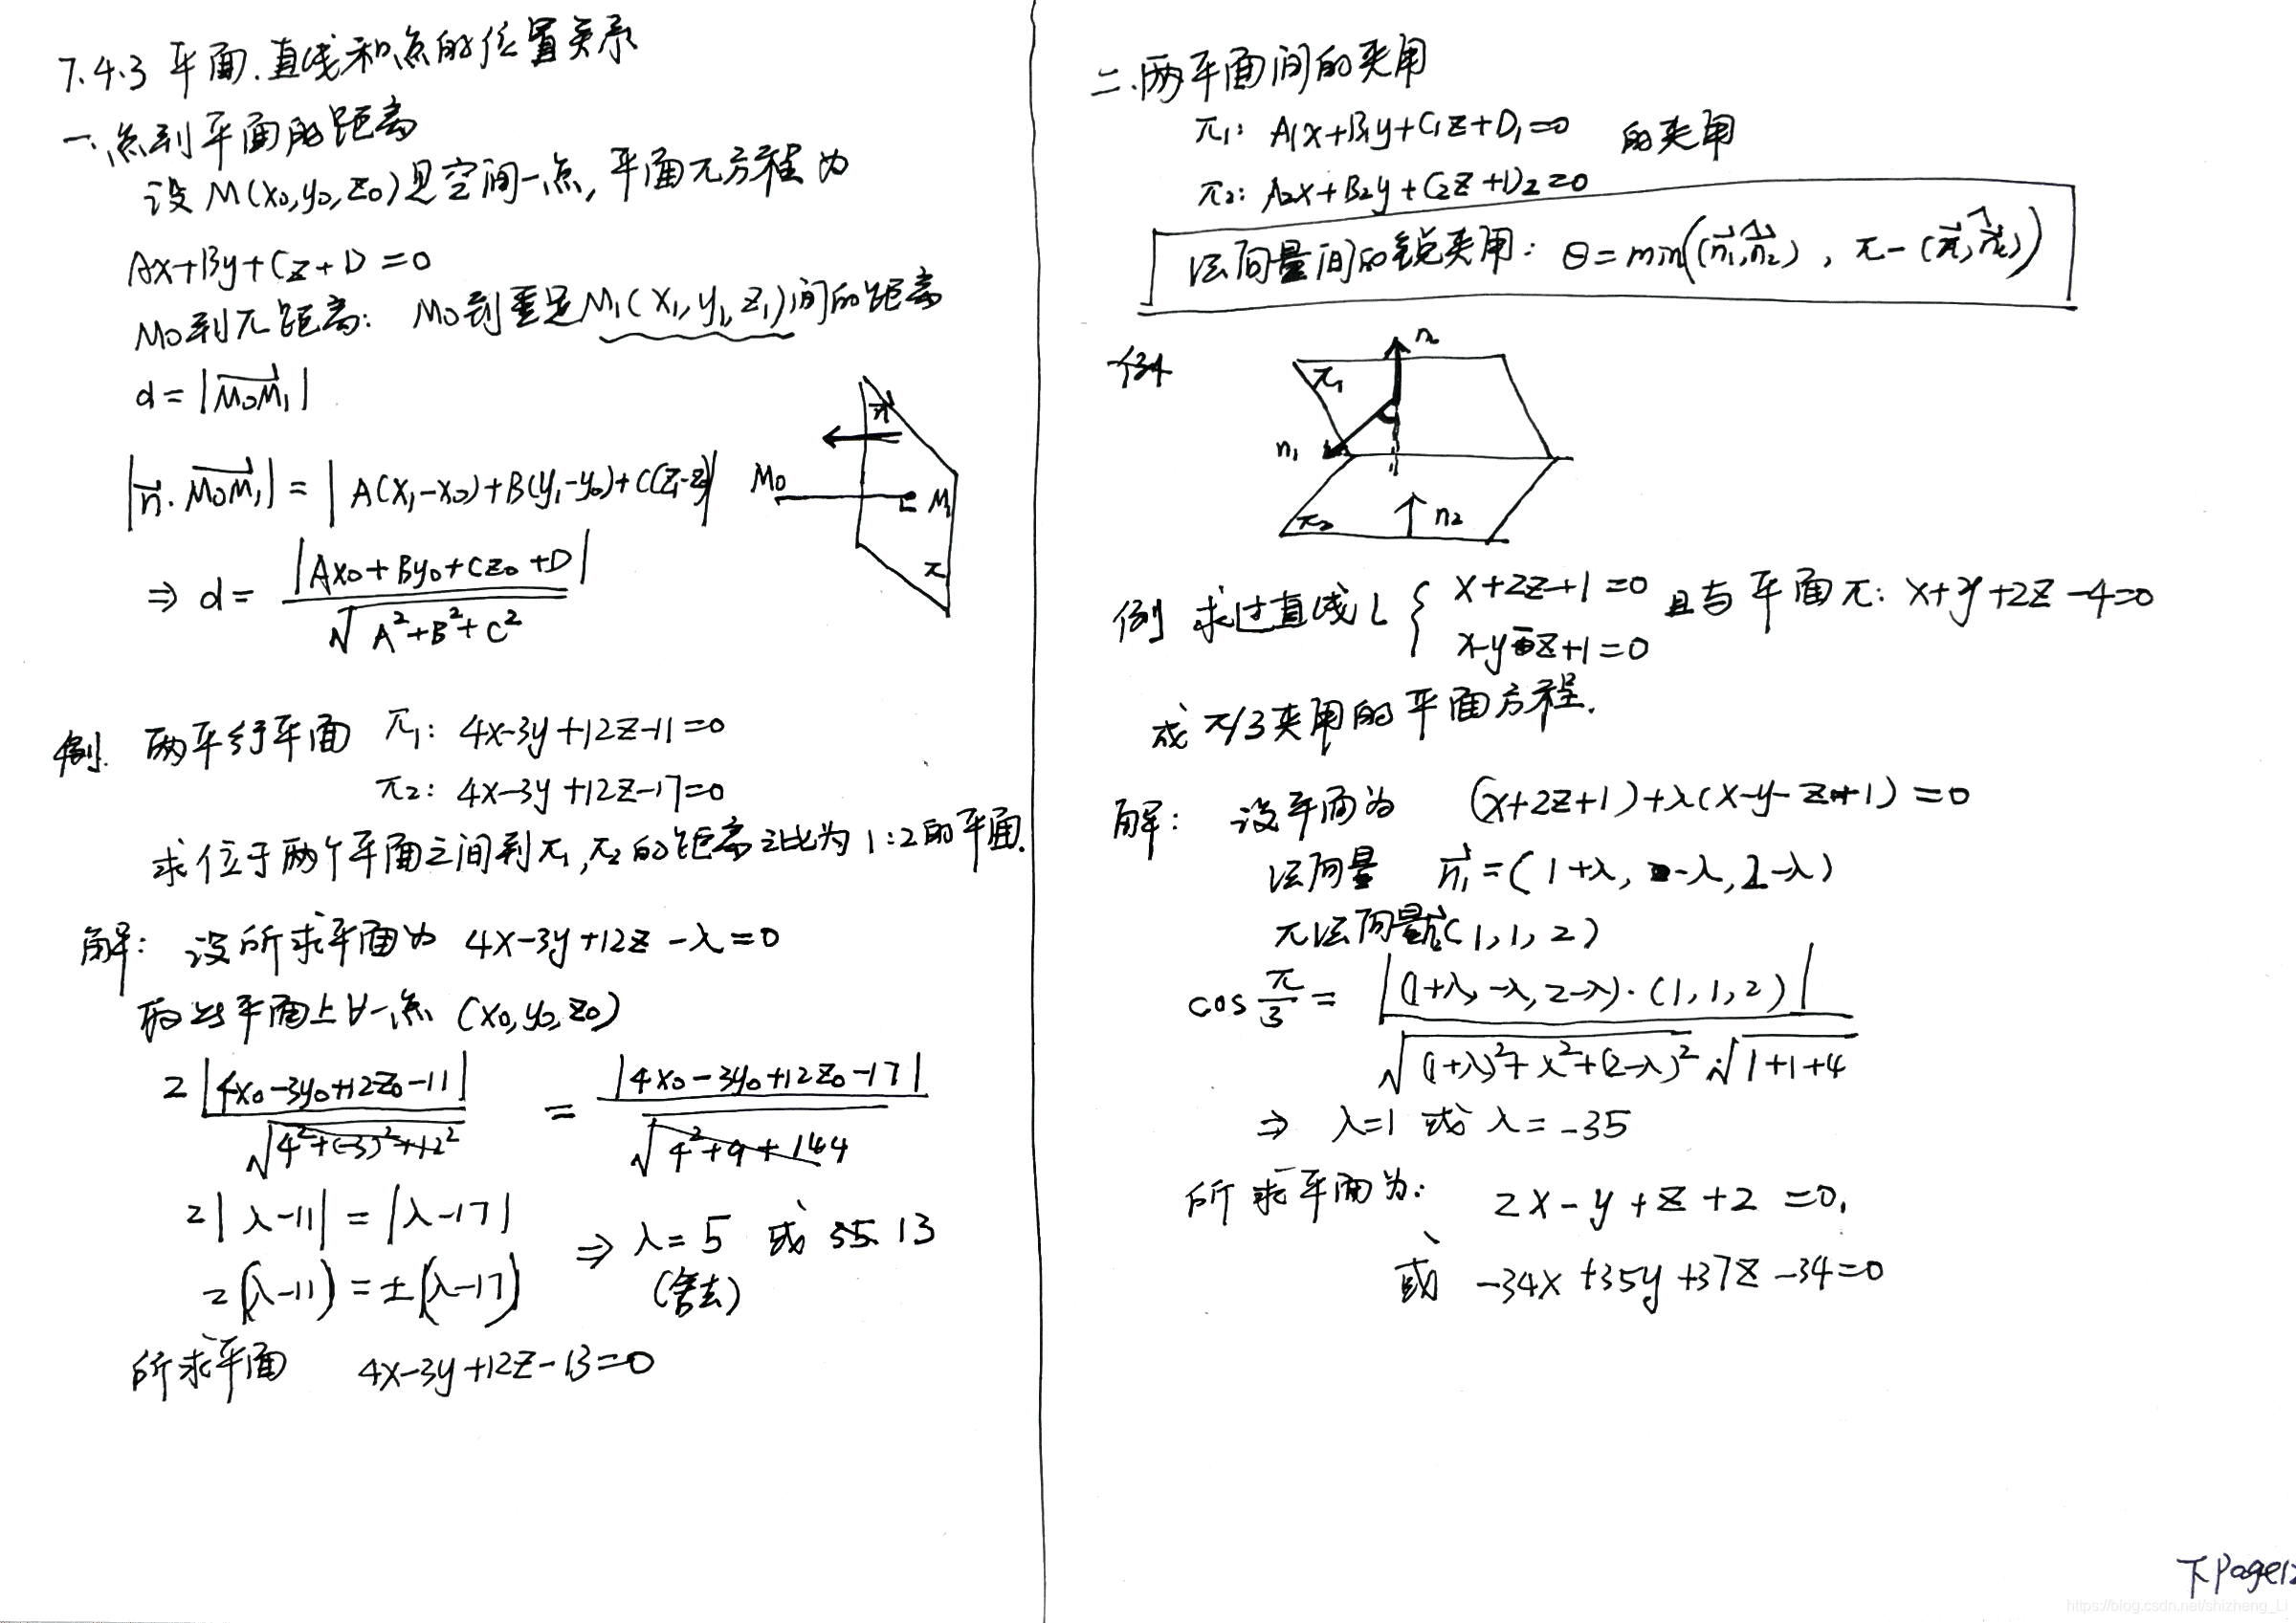 7.4.3 平面.直线和点的位置关系
一、点到平面的距离
设 M(x₀,y₀,z₀)是空间一点,平面π方程为
Ax+By+Cz+D=0
M₀到π距离: M₀到垂足M₁(x₁,y₁,z₁)间的距离
d=|M₀M₁|
|n·M₀M₁|=|A(x₁-x₀)+B(y₁-y₀)+C(z₁-z₀)|
n
M₀
M₁
π
⇒ d= |Ax₀+By₀+Cz₀+D| / √(A²+B²+C²)
例. 两平行平面 π₁: 4x-3y+12z-11=0
π₂: 4x-3y+12z-17=0
求位于两个平面之间到π₁,π₂的距离之比为1:2的平面.
解: 设所求平面为 4x-3y+12z-λ=0
取此平面上∀一点 (x₀,y₀,z₀)
2|4x₀-3y₀+12z₀-11| / √(4²+(-3)²+12²) = |4x₀-3y₀+12z₀-17| / √(4²+9+144)
2|λ-11|=|λ-17|
2(λ-11)=±(λ-17) ⇒ λ=5 或 13
(舍去)
所求平面 4x-3y+12z-13=0
二.两平面间的夹角
π₁: A₁x+B₁y+C₁z+D₁=0 的夹角
π₂: A₂x+B₂y+C₂z+D₂=0
法向量间的锐夹角: θ=min((n₁,n₂), π-(n₁,n₂))
例
π₁
n₂
n₁
π₂
n₂
例 求过直线L { x+2z+1=0 且与平面π: x+y+2z-4=0
x-y-z+1=0
成π/3夹角的平面方程.
解: 设平面为 (x+2z+1)+λ(x-y-z+1)=0
法向量 n₁=(1+λ, -λ, 2-λ)
π法向量(1,1,2)
cos π/3 = |(1+λ,-λ,2-λ)·(1,1,2)| / √((1+λ)²+λ²+(2-λ)²)·√(1+1+4)
⇒ λ=1 或 λ=-35
所求平面为: 2x-y+z+2=0,
或 -34x+35y+37z-34=0
下Page12
https://blog.csdn.net/shizheng_Li